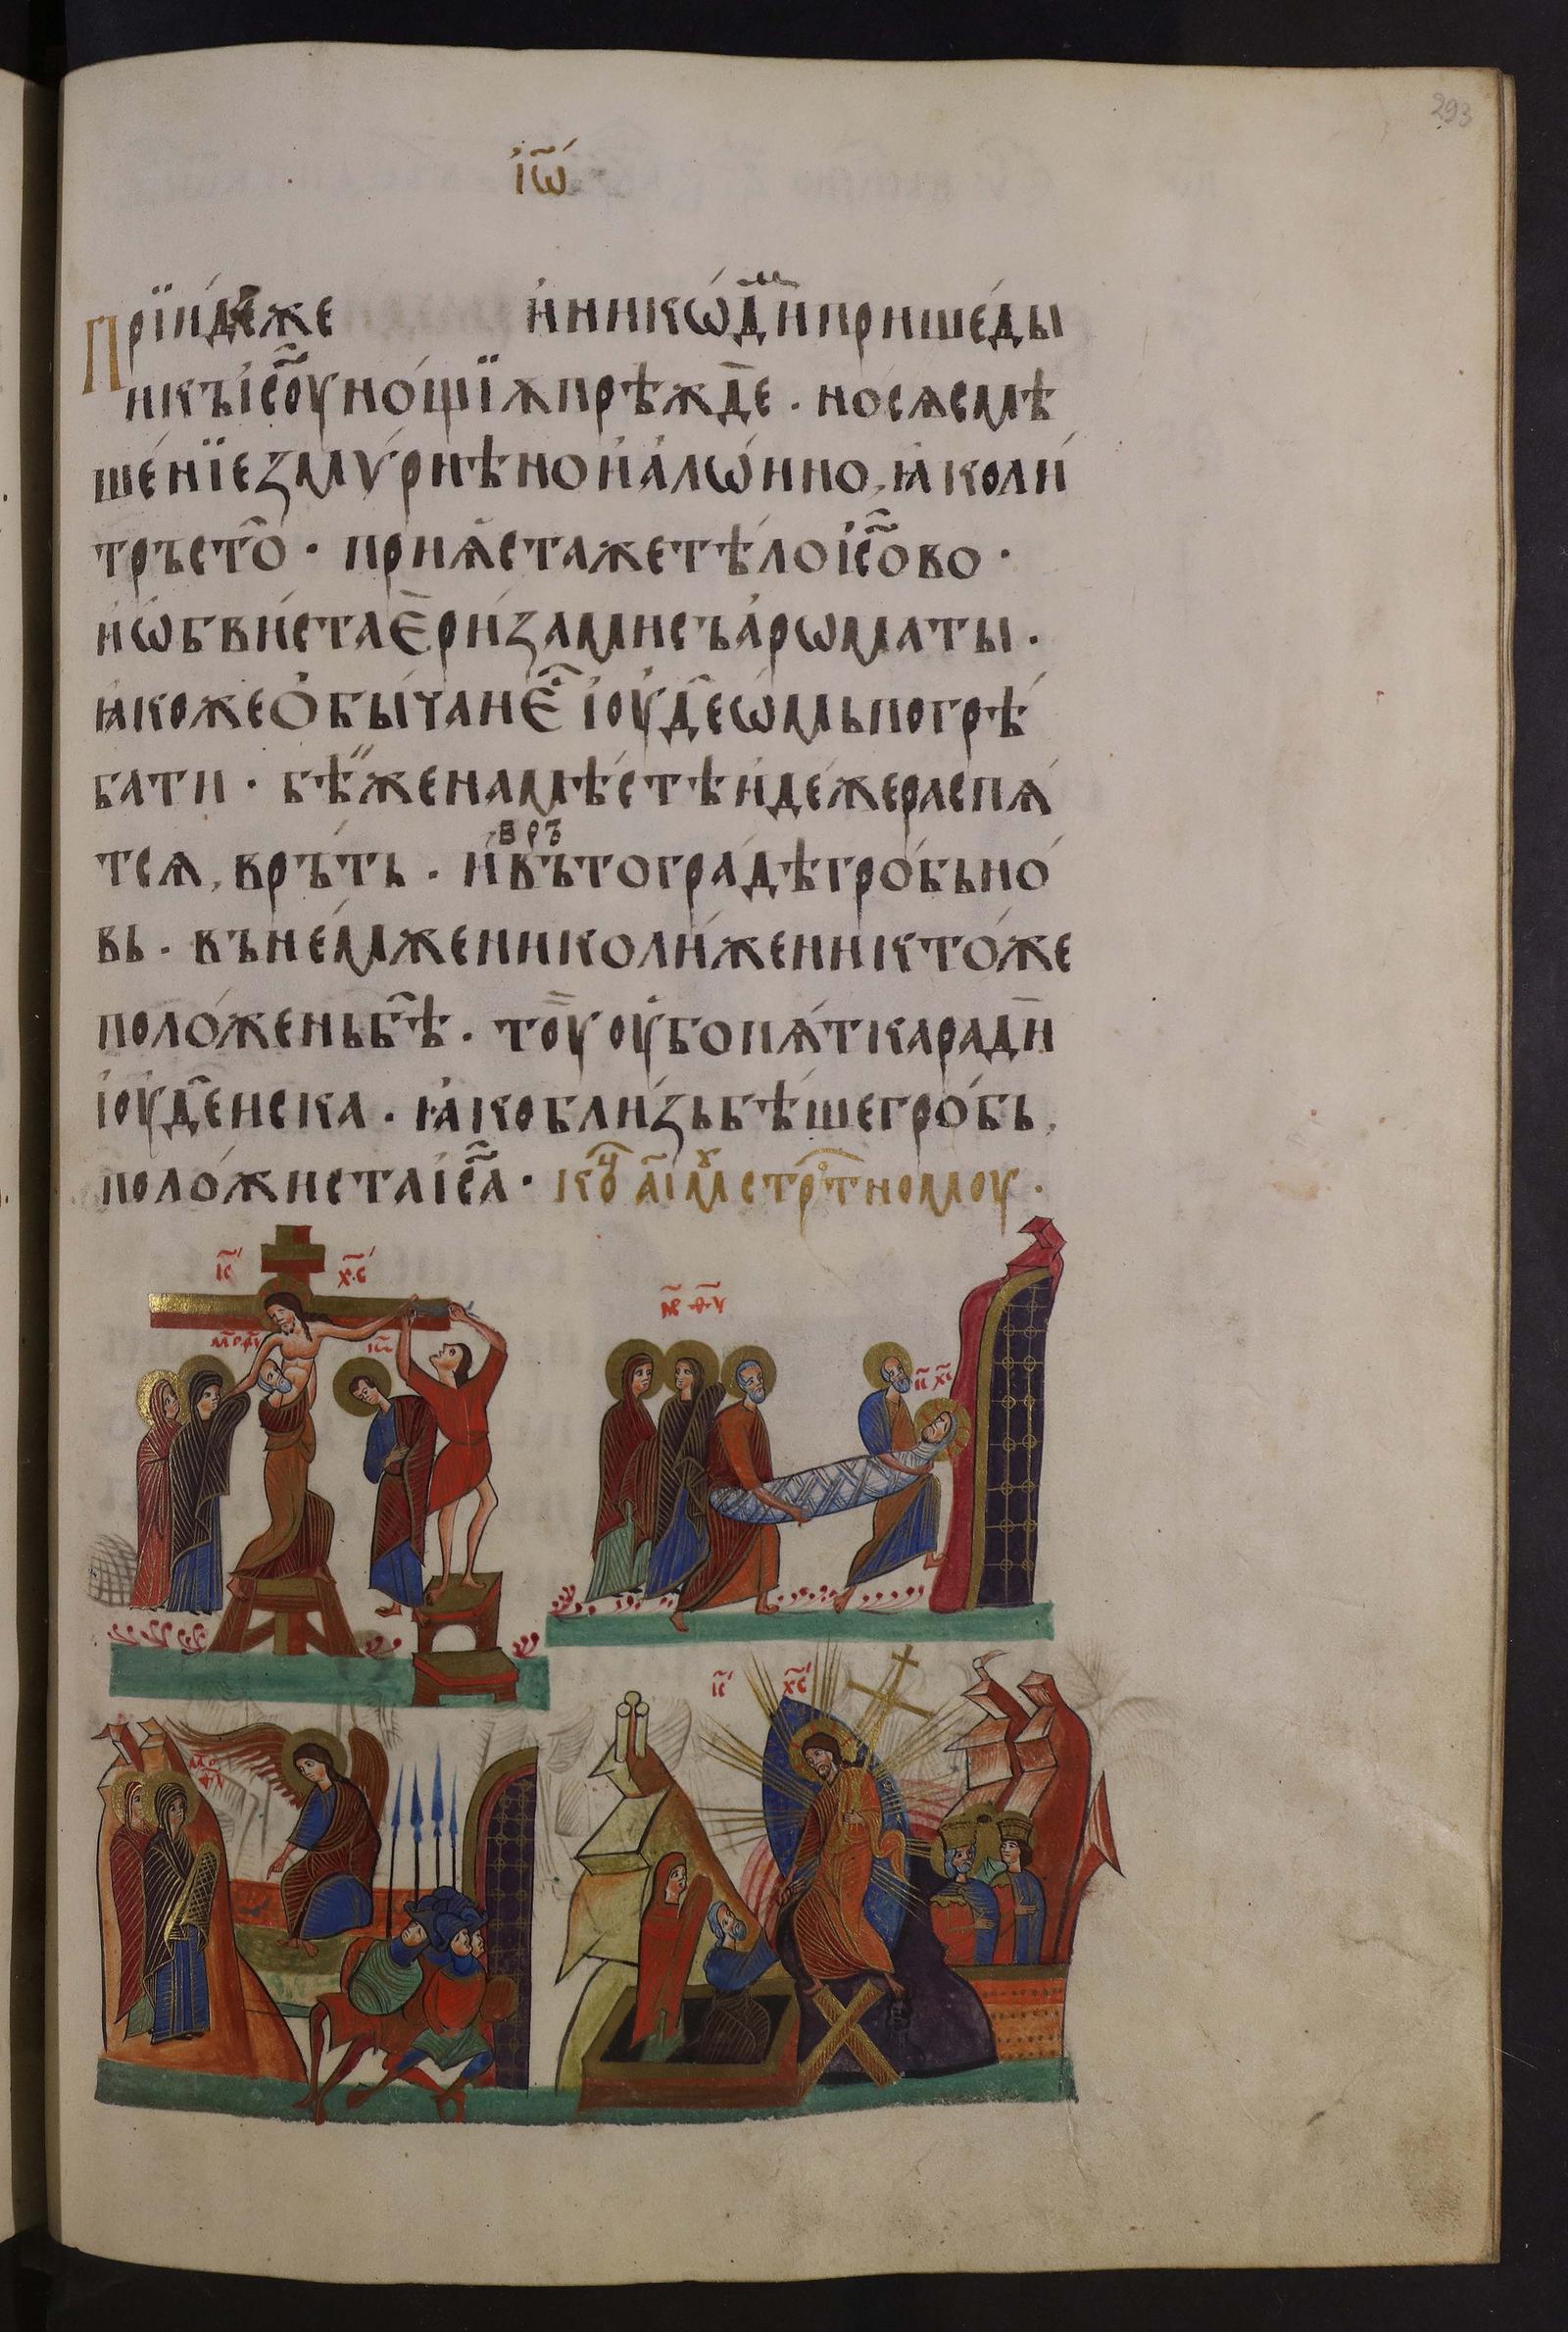 293
і҆ѡ҃
Прїи́дⷷеже и҆никѡ́дⷨи пришéды
икъі҆с҃оуно́щїѫпрѣждⷷе · носѧсмѣ
ше́нїеꙁмѵ́рнѣнои҆а҆лѡ́нно, ꙗ҆коли́
тръсто̑ · приѧ́стажетѣ́лоі҆с҃о́во ·
и҆ѡ҆бви́стаЄ҆ри́ꙁамисъа҆рѡматы ·
ꙗ҆кожеО҆бы́чаиє҆̑ і҆оуде́ѡмьпогрѣ́
бати · бѣ́женамѣ́стѣи҆де́жераспѧ́
тсѧ, врь́ть · и҆въ врътогра́дѣгро́бьно́
вь · вънéмженико́ли́жениктóже
поло́женьбѣ̑ · тоу҆ оу҆бопѧ́ткарадⷷи
і҆оуде́иска · ꙗ҆кобли́ꙁьбѣ́шегро́бь,
поло́жистаі҆с҃а · коⷰ҇ а҃і мⷹ стрⷭ҇тномоу ·
і҃с х҃с
м҃р ѳ҃ѵ
і҃ѡ
м҃р ѳ҃ѵ
і҃с х҃с
м҃р ѳ҃ѵ
і҃с х҃с